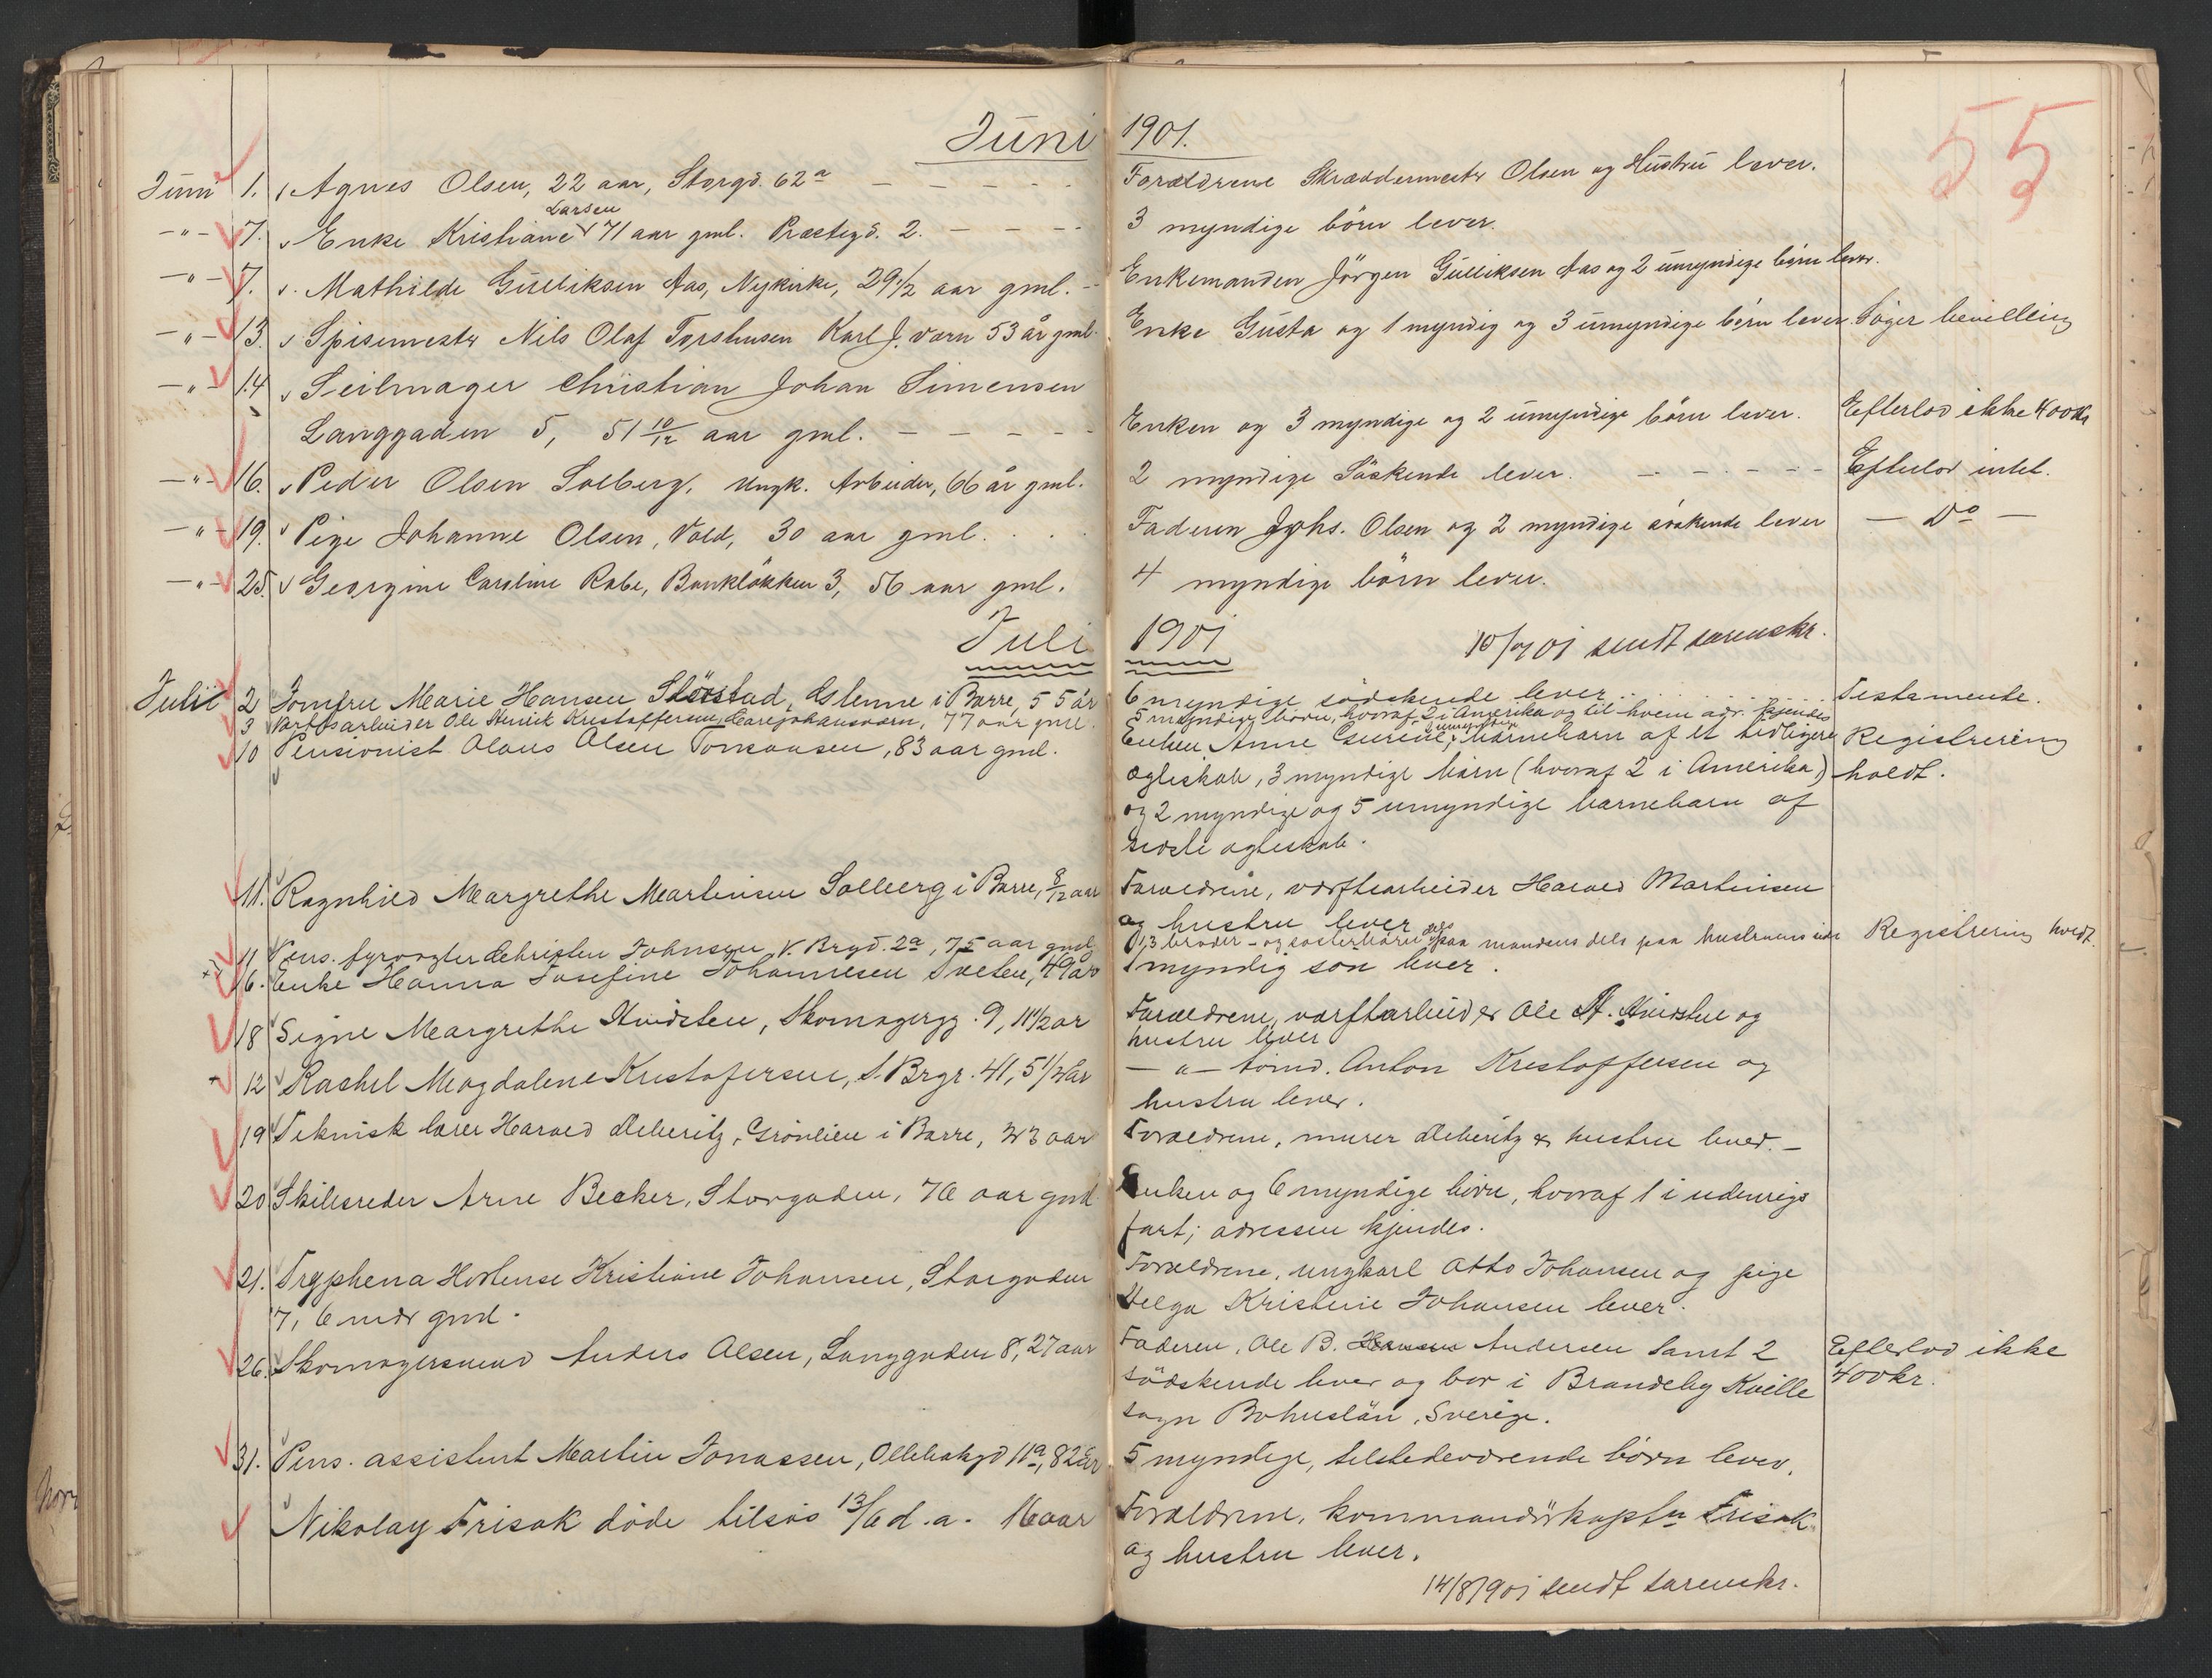 Juni 1901.
55
Juni 1. Agnes Olsen, 22 aar, Storgd. 62a – – – – – Forældrene Skræddermester Olsen og Hustru lever.
–"– 7. Enke Kristiane Larsen 71 aar gml. Præstegd. 2. – – – – 3 myndige börn lever.
–"– 7. Mathilde Gulliksen Aas, Nykirke, 29 1/2 aar gml. – Enkemanden Jörgen Gulliksen Aas og 2 umyndige börn lever.
–"– 13. Spisemester Nils Olaf Torshusen Karl J. værn 53 år gml. Enke Gusta og 1 myndig og 3 umyndige börn lever. Söger bevilling
–"– 14 Seilmager Christian Johan Simensen
Langgaden 5, 51 10/12 aar gml. – – – – – Enken og 3 myndige og 2 umyndige börn lever. Efterlod ikke 400 Kr
–"– 16. Peder Olsen Solberg, Ungk. Arbeider, 66 år gml. 2 myndige Söskende lever. – – – – – Efterlod intet.
–"– 19. Pige Johanne Olsen, Vold, 30 aar gml. . . . Faderen Johs. Olsen og 2 myndige söskende lever – Do –
–"– 25. Georgine Caroline Rabe, Banklökken 3, 56 aar gml. 4 myndige börn lever.
Juli 1901
10/7 01 sendt sorenskr.
Juli 2 Jomfru Marie Hansen Störstad, Aslenne i Borre, 55 år 6 myndige södskende lever . . . . . . Testamente.
3 Værftsarbeider Ole Henrik Kristoffersen, Karljohansværn, 77 aar gml. 5 myndige börn, hvoraf 2 i Amerika og til hvem adr. kjendes
10 Pensionist Olaus Olsen Tonsaasen, 83 aar gml. Enken Anne Gurine, umyndige barnebarn af et tidligere Registrering
ægteskab, 3 myndige börn (hvoraf 2 i Amerika) holdt.
og 2 myndige og 5 umyndige barnebarn af
sidste ægteskab.
11. Ragnhild Margrethe Martinsen Solberg i Borre, 8/12 aar Forældrene, værftsarbeider Harald Martinsen
og hustru lever
11 Pens. fyrvogter Christen Johnsen, V. Brgd. 2a, 75 aar gml. 13 broder- og sosterbörn dels paa mandens dels paa hustruens side Registrering holdt.
16. Enke Hanna Josefine Johannesen Sveten, 49 aar 1 myndig sön lever.
18 Signe Margrethe Kvidsten, Skomagergg. 9, 11 1/2 ar Forældrene, værftsarbeider Ole A. Kvisten og
hustru lever
12 Rachel Magdalene Kristofersen, S. Brgr. 41, 5 1/2 år –"– tömd. Anton Kristoffersen og
hustru lever.
19 Teknisk lærer Harald Deberitz, Grönlien i Borre, 33 aar Forældrene, murer Deberitz & hustru lever. –
20 Skibsreder Arne Becker, Storgaden, 76 aar gml Enken og 6 myndige börn, hvoraf 1 i udenrigs
fart; adressen kjendes.
21. Tryphena Hortense Kristiane Johansen, Storgaden Forældrene, ungkarl Otto Johansen og pige
7, 6 mdr gml. Helga Kristine Johansen lever.
26. Skomagersvend Anders Olsen, Langgaden 8, 27 aar Faderen, Ole B. Hansen Andersen samt 2 Efterlod ikke
södskende lever og bor i Brandeby Kville 400 kr.
sogn Bohuslän, Sverige.
31. Pens. assistent Martin Jonassen, Ollebakgd 11a, 82 år 5 myndige, tilstedeværende börn lever.
Nikolay Frisak döde tilsös 13/6 d.a. 16 aar Forældrene, kommandörkaptn Frisak
og hustru lever.
14/8 1901 sendt sorenskr.